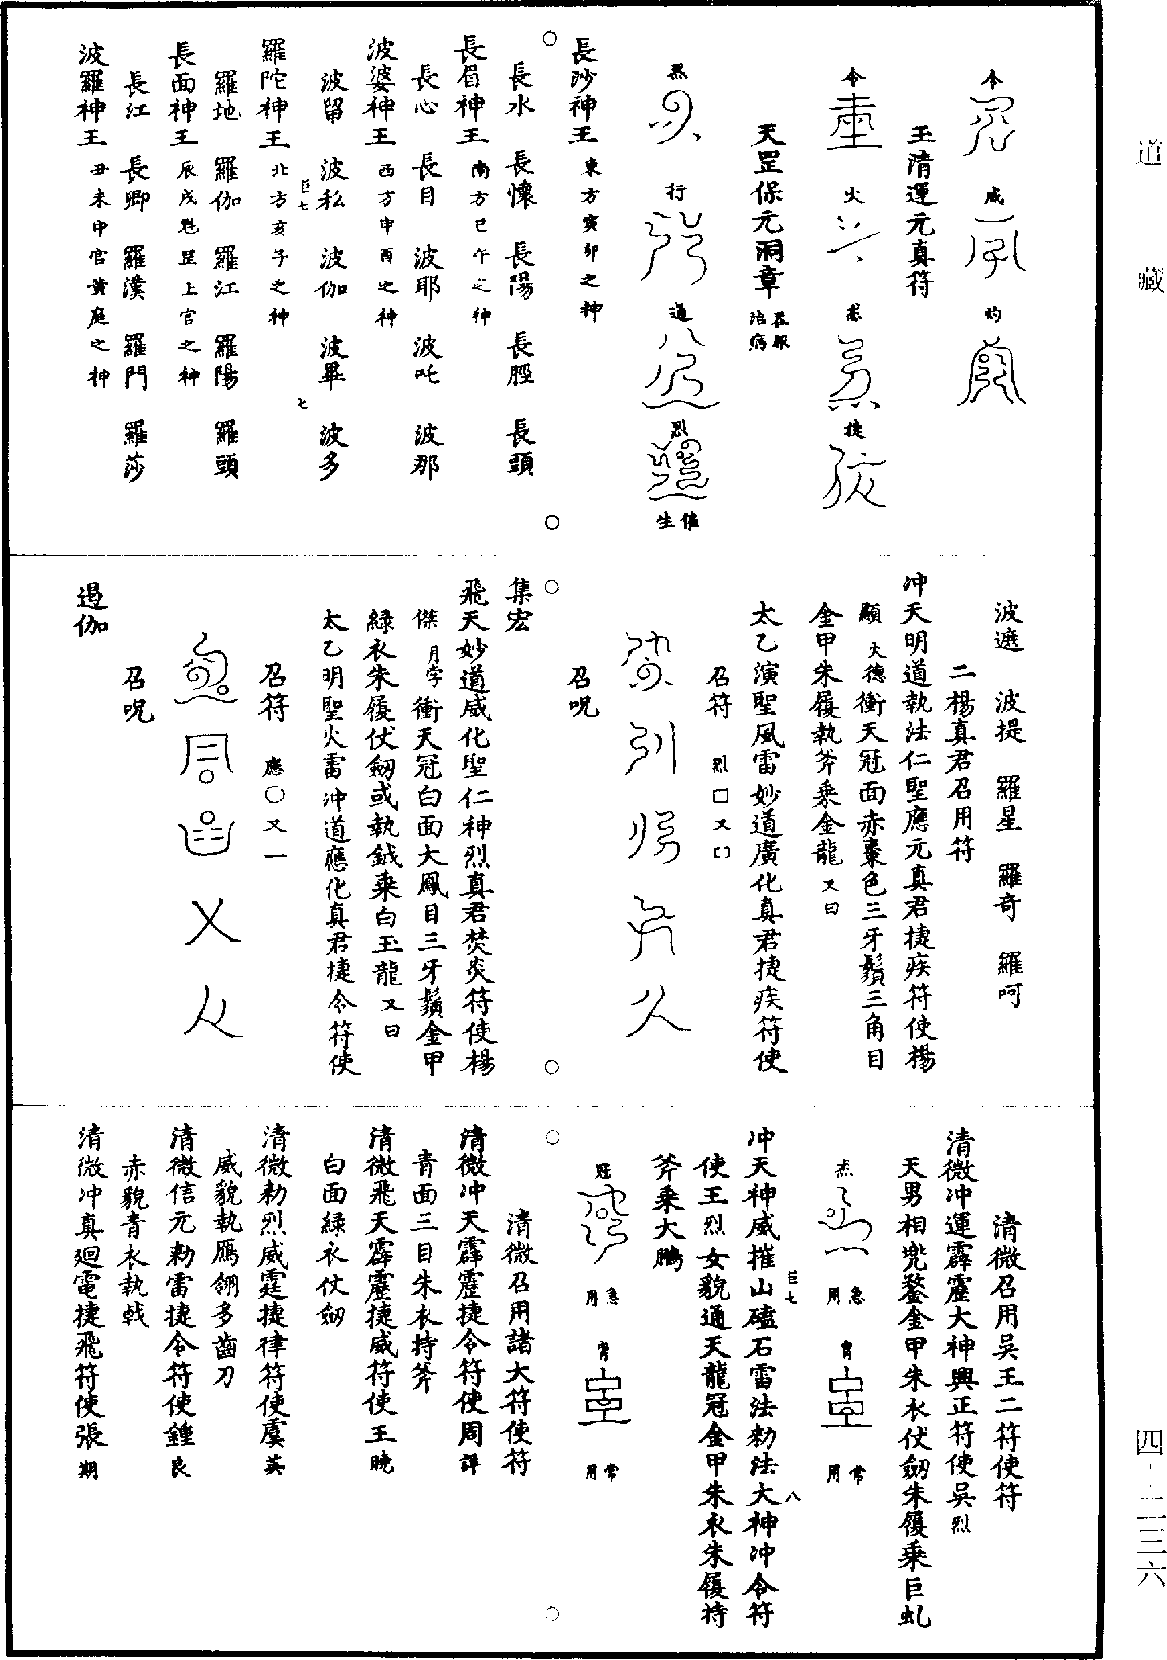 道藏
四-二三六
令
威
灼
玉清運元真符
令
火
炁
捷
天罡保元洞章
炁
行
道
烈
催生
長沙神王 東方寅卯之神
長水 長懷 長陽 長脛 長頭
長眉神王 南方巳午之神
長心 長目 波耶 波吒 波那
波婆神王 西方申酉之神
波留 波私 波伽 波畢 波多
羅陀神王 北方亥子之神
羅地 羅伽 羅江 羅陽 羅頭
長面神王 辰戌魁罡上官之神
長江 長卿 羅漢 羅門 羅莎
波羅神王 丑未中官黃庭之神
波遮 波提 羅星 羅奇 羅呵
二楊真君召用符
冲天明道執法仁聖應元真君捷疾符使楊
顯 火德衝天冠面赤棗色三牙鬚三角目
金甲朱履執斧乘金龍又曰
太乙演聖風雷妙道廣化真君捷疾符使
召符 烈口又口
召呪
集宏
飛天妙道威化聖仁神烈真君焚炎符使楊
傑 月孛衝天冠白面大鳳目三牙鬚金甲
綠衣朱履伏劒或執鉞乘白玉龍又曰
太乙明聖火雷冲道應化真君捷令符使
召符 應〇乂一
召呪
遏伽
清微召用吳王二符使符
清微冲運霹靂大神興正符使吳烈
天男相兜鍪金甲朱衣伏劒朱履乘巨虬
炁
急用
胃
常用
冲天神威摧山磕石雷法勑法大神冲令符
使王烈女貌通天龍冠金甲朱衣朱履持
斧乘大鵬
急用
胃
常用
清微召用諸大符使符
清微冲天霹靂捷令符使周詳
青面三目朱衣持斧
清微飛天霹靂捷威符使王曉
白面綠衣仗劒
清微勑烈威霆捷律符使虞英
威貌執鴈翎多齒刀
清微信元勑雷捷令符使鍾良
赤貌青衣執戟
清微冲真迴電捷飛符使張期
巨七
七
巨七
八